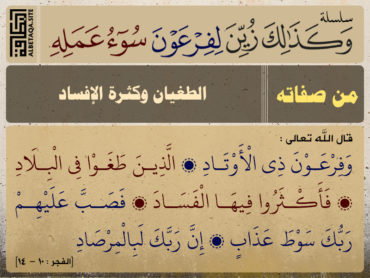 سلسلة
وَكَذَٰلِكَ زُيِّنَ لِفِرْعَوْنَ سُوٓءُ عَمَلِهِ
البطاقة
ALBETAQA.SITE
من صفاته
الطغيان وكثرة الإفساد
قال اللّه تعالى :
وَفِرْعَوْنَ ذِى الْأَوْتَادِ ۞ الَّذِينَ طَغَوْا فِى الْبِلَادِ
۞ فَأَكْثَرُوا فِيهَا الْفَسَادَ ۞ فَصَبَّ عَلَيْهِمْ
رَبُّكَ سَوْطَ عَذَابٍ ۞ إِنَّ رَبَّكَ لَبِالْمِرْصَادِ
[الفجر : ١٠ - ١٤]